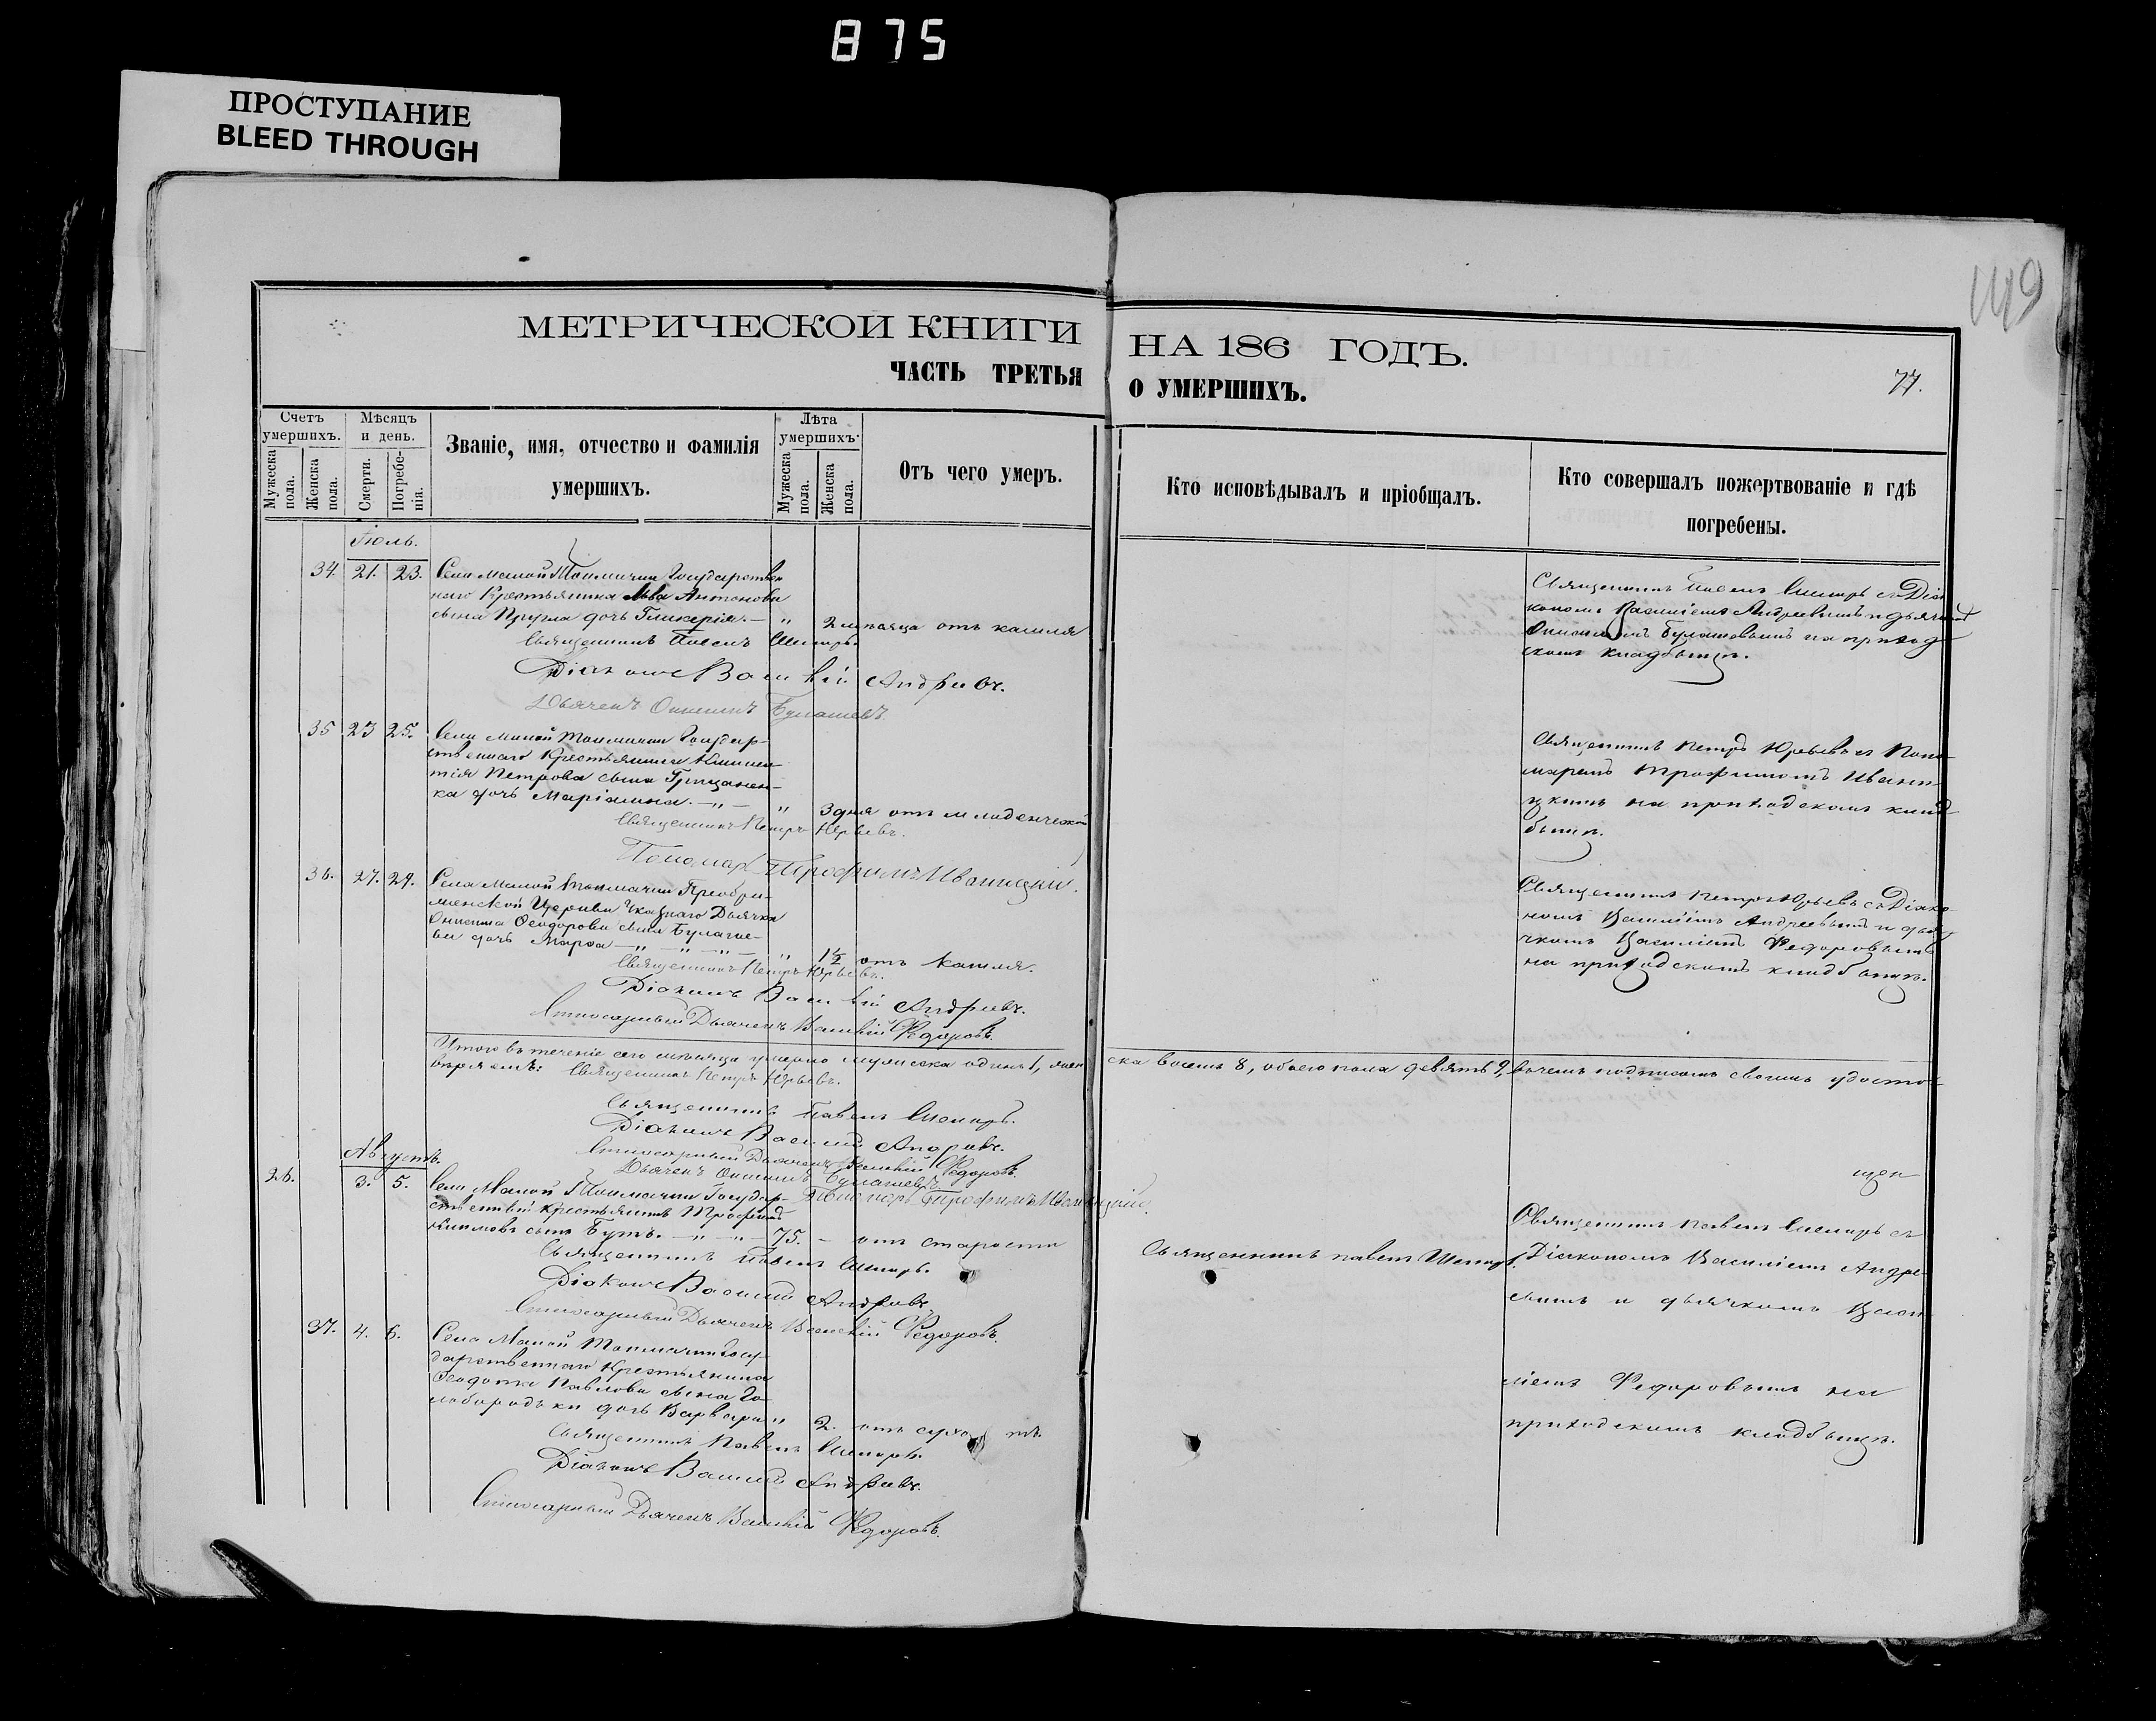 875
ПРОСТУПАНИЕ
BLEED THROUGH
149
МЕТРИЧЕСКОЙ КНИГИ НА 186 ГОДЪ.
ЧАСТЬ ТРЕТЬЯ О УМЕРШИХЪ.
77.
Счетъ умершихъ.
Мужеска пола.
Женска пола.
Мѣсяцъ и день.
Смерти.
Погребенія.
Званіе, имя, отчество и фамилія умершихъ.
Лѣта умершихъ.
Мужеска пола.
Женска пола.
Отъ чего умеръ.
Кто исповѣдывалъ и пріобщалъ.
Кто совершалъ пожертвованіе и гдѣ погребены.
Іюль.
34. 21. 23. Села Малой Токмачки Государствен
наго Крестьянина Льва Антонова
сына дочь Гликерія. — " 2 мѣсяца отъ кашля
Священникъ Павелъ
Діаконъ Василій Андреевъ.
Дьячекъ Онисимъ Булашевъ
Священникъ Павелъ съ Діа
кономъ Василіемъ Андреевымъ и дьячкомъ
Онисимомъ Булашевымъ на приход
скомъ кладбищѣ.
35 23 25. Села Малой Токмачки Государ-
ственнаго Крестьянина
Петрова сына Грицанен-
ка дочь Маріамна. — " — " 3 дня отъ младенческой
Священникъ Петръ Юрьевъ.
Пономарь Трофимъ Иваницкій.
Священникъ Петръ Юрьевъ съ Поно-
маремъ Трофимомъ Иваниц-
кимъ на приходскомъ клад
бищѣ.
36. 27. 29. Села Малой Токмачки Преобра-
женской Церкви Указнаго Дьячка
Онисима Ѳеодорова сына Булаше-
ва дочь Марѳа — " — " — " — " 1½ отъ кашля.
Священникъ Петръ Юрьевъ.
Діаконъ Василій Андреевъ.
Дьячекъ Василій Федоровъ.
Священникъ Петръ Юрьевъ съ Діако-
номъ Василіемъ Андреевымъ и дья-
чкомъ Василіемъ Федоровымъ
на приходскомъ кладбищѣ.
Итого въ теченіе сего мѣсяца умерло мужеска одинъ 1, жен ска восемь 8, обоего пола девять 9, въ чемъ подписомъ своимъ удосто-
вѣряемъ: Священникъ Петръ Юрьевъ.
Священникъ Павелъ
Діаконъ Василій Андреевъ.
Дьячекъ Василій Федоровъ.
Дьячекъ Онисимъ Булашевъ
Пономарь Трофимъ Иваницкій.
Августъ.
26. 3. 5. Села Малой Токмачки Государ-
ственный крестьянинъ Трофимъ
Климовъ сынъ Бутъ. — " — " — 75. — отъ старости
Священникъ Павелъ
Діаконъ Василій Андреевъ.
Дьячекъ Василій Федоровъ.
Священникъ павелъ
Священникъ Павелъ съ
Діакономъ Василіемъ Андре-
евымъ и дьячкомъ Васи-
ліемъ Федоровымъ на
приходскомъ кладбищѣ.
37. 4. 6. Села Малой Токмачки Госу-
дарственнаго Крестьянина
Ѳеодота Павлова сына Го-
лобородьки дочь Варвара " 2. отъ
Священникъ Павелъ
Діаконъ Василій Андреевъ.
Дьячекъ Василій Федоровъ.